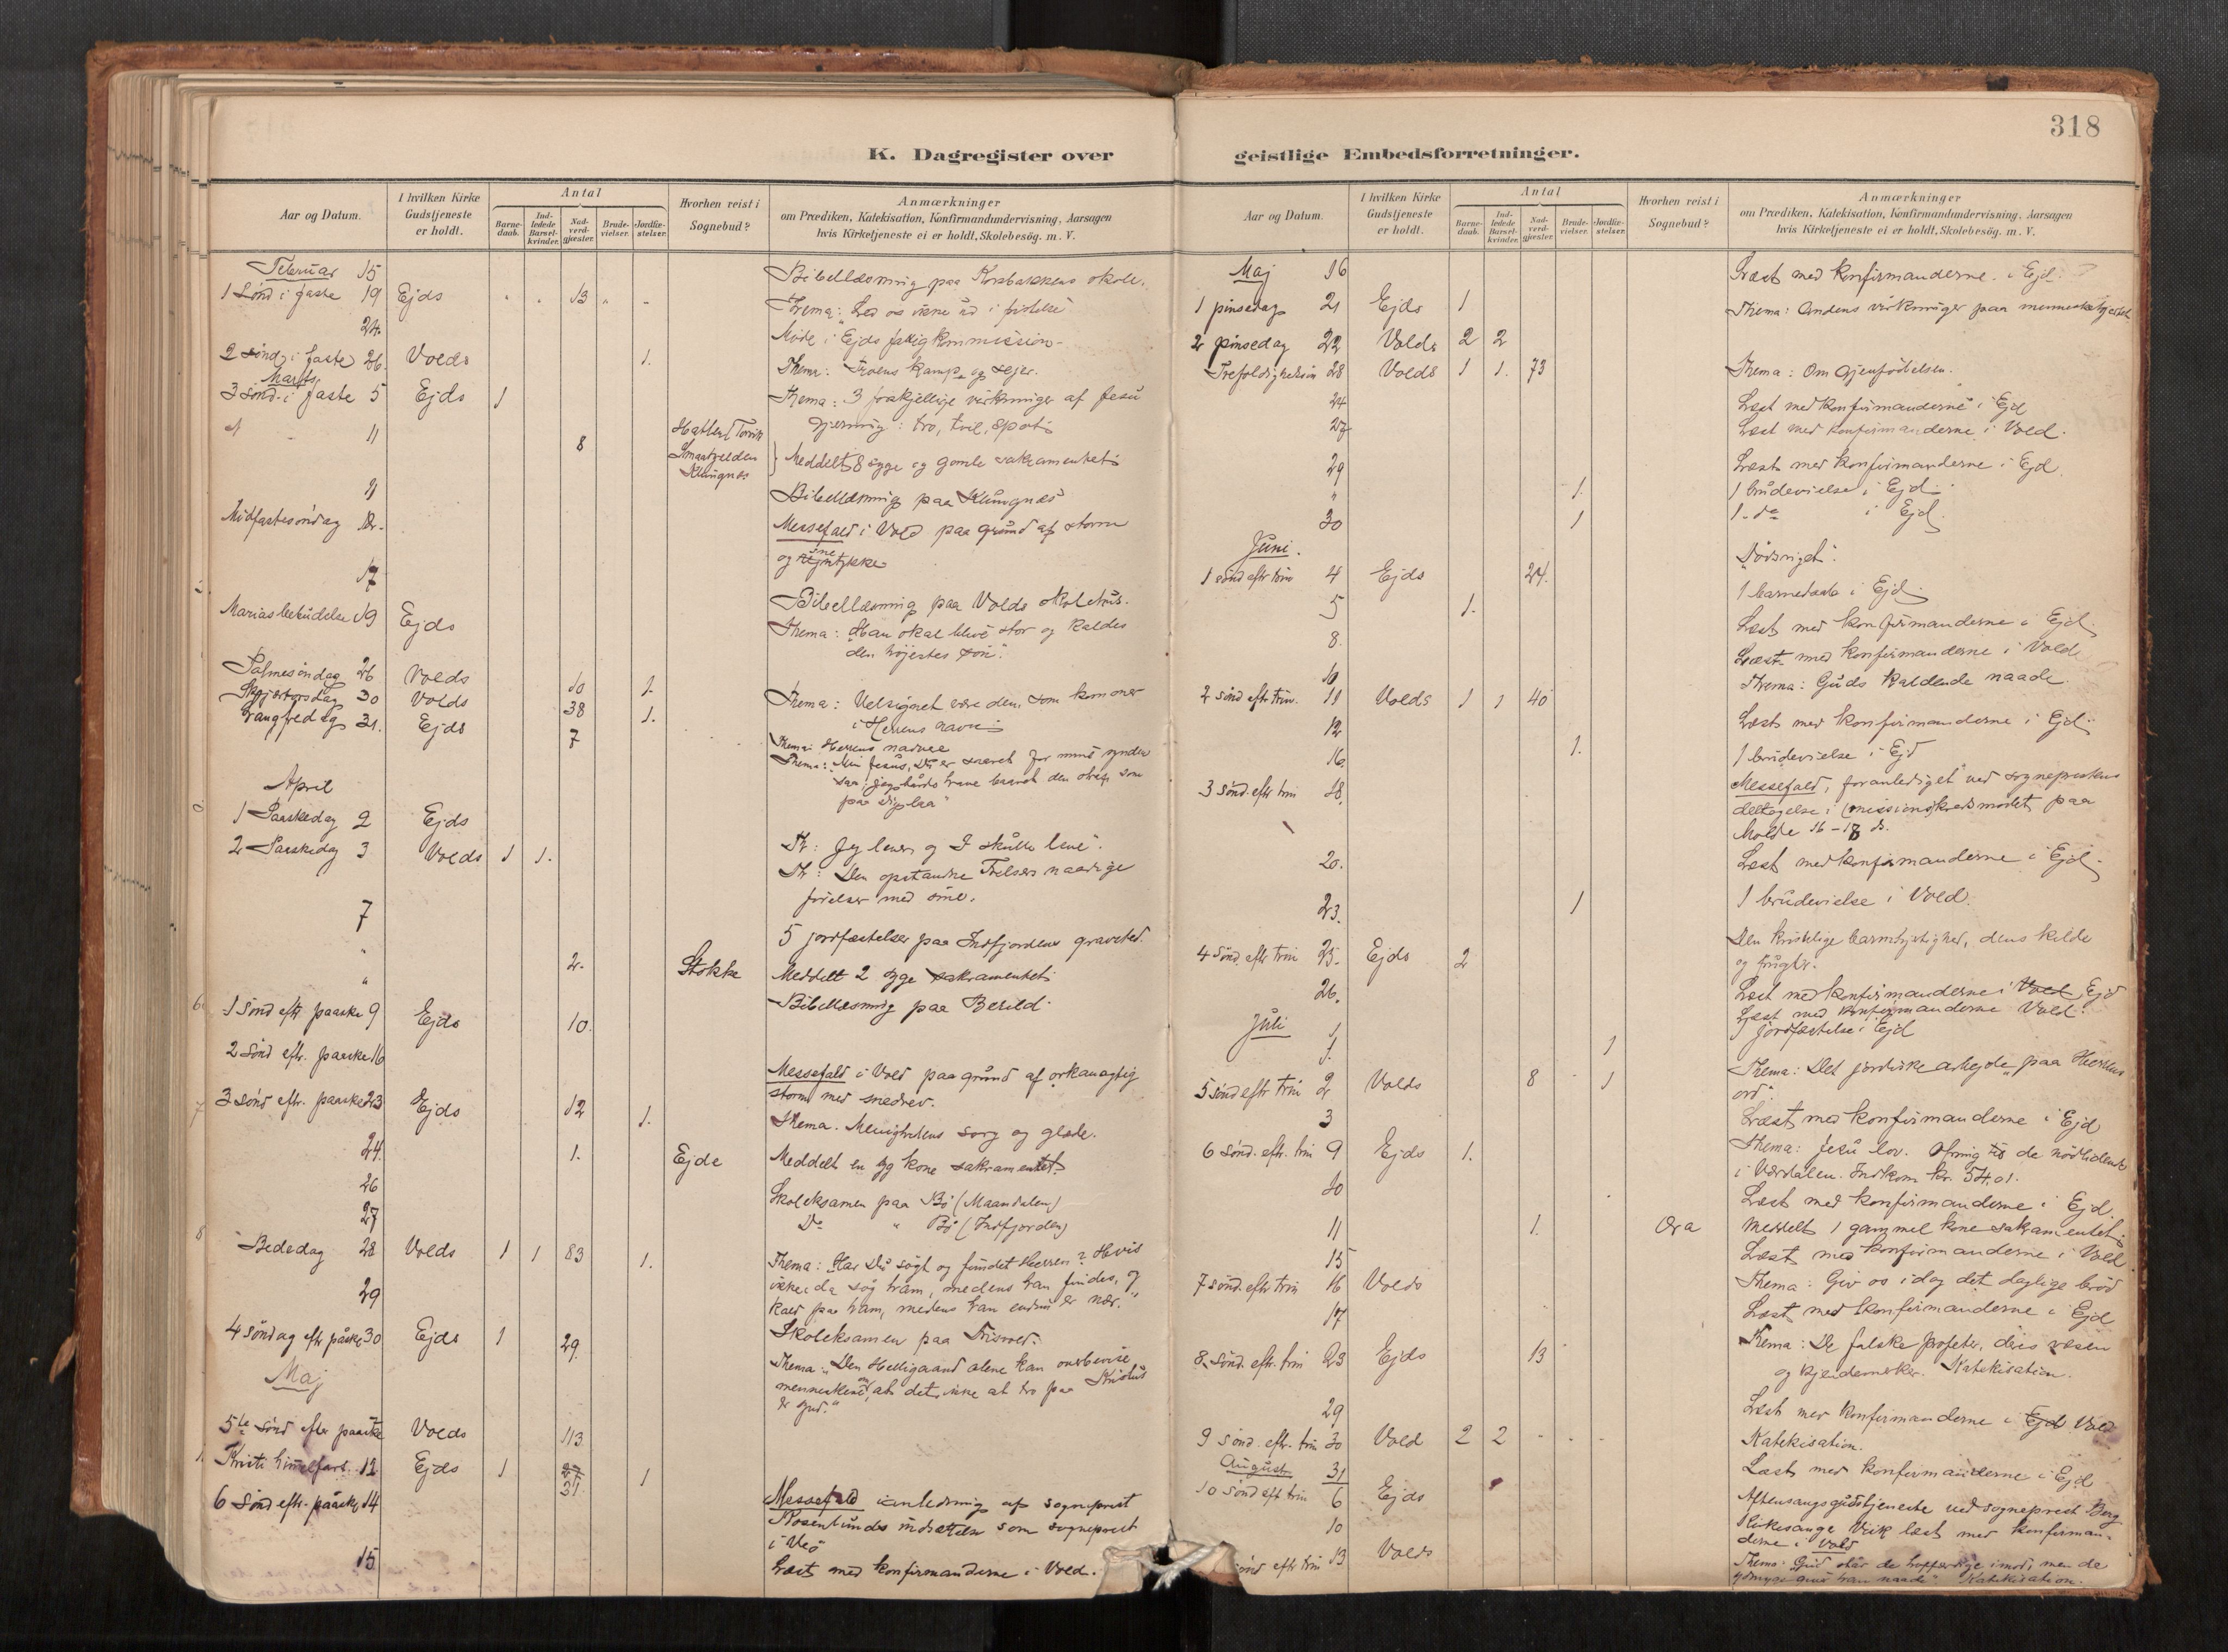 318
K. Dagregister over
Aar og Datum.
I hvilken Kirke Gudstjeneste er holdt.
Antal
Barnedaab.
Indledede Barselkvinder.
Nadverdgjæster.
Brudevielser.
Jordfæstelser.
Hvorhen reist i Sognebud?
Anmærkninger
om Prædiken, Katekisation, Konfirmandundervisning, Aarsagen
hvis Kirketjeneste ei er holdt, Skolebesög. m. V.
Februar 15 Bibellæsning paa skole.
1 Sönd i faste 19 Ejds 13 Thema: Led os ikke ind i fristelse
24. Möde i Ejds fattigkommission
2 sönd i faste 26. Volds 1. Thema: Troens kamp og sejer.
Marts
3 sönd. i faste 5 Ejds 1 Thema: 3 forskjellige virkninger af Jesu
gjerning: tro, tvil, spot
11 8 Torvik
Meddelt 8 syge og gamle sakramentet
Klungnes
11 Bibellæsning paa Klungnæs
Midfastesöndag 12. Messefald i Vold paa grund af storm
og
17 Bibellæsning paa Volds skolehus.
Marias bebudelse 19 Ejds Thema: "Han skal blive stor og kaldes
den höjestes sön".
Palmesöndag 26 Volds 10 1. Thema: Velsignet være den, som kommer
i Herrens navn
Skjærtorsdag 30 Volds 38 1. Thema: Herrens nadvere
Langfredag 31. Ejds 7 Thema: Min Jesus, Du er saaret for mine synder
April
1 Paaskedag 2 Ejds Th: Jeg lever og I skulle leve".
2 Paaskedag 3 Volds 1 1. Th: Den opstandne Frelsers naadige
med sine.
7 5 jordfæstelser paa Indfjordens gravsted.
" 2. Stokke Meddelt 2 syge sakramentet
" Bibellæsning paa
1 Sönd eft. paaske 9 Ejds 10.
2 Sönd eft. paaske 16 Messefald i Vold paa grund af orkanagtig
storm med snedrev.
3 sönd eft. paaske 23 Ejds 12 1. Thema. Menighedens sorg og glæde.
24. 1. Ejde Meddelt en syg kone sakramentet.
26 Skoleksamen paa Bö (Maandalen)
27 Do " Bö (Indfjorden)
Bededag 28 Volds 1 1 83 1. Thema: Har Du sögt og fundet Herren? Hvis
ikke, da sög ham, medens han findes, og
kald paa ham, medens han endnu er nær."
29 Skoleksamen paa
4 söndag eft. påske 30 Ejds 1 29. Thema: "Den Helligaand alene kan overbevise
menneskene om, at det ikke at tro paa Kristus
er synd."
Maj
5te sönd efter paaske Volds 113
Kristi himmelfart 12 Ejds 1 1
6 Sönd eft. påske 14 Messefald i anledning af sogneprest
indsættelse som sogneprest
i Veö
15 Læst med konfirmanderne i Vold.
geistlige Embedsforretninger.
Aar og Datum.
I hvilken Kirke Gudstjeneste er holdt.
Antal
Barnedaab.
Indledede Barselkvinder.
Nadverdgjæster.
Brudevielser.
Jordfæstelser.
Hvorhen reist i Sognebud?
Anmærkninger
om Prædiken, Katekisation, Konfirmandundervisning, Aarsagen
hvis Kirketjeneste ei er holdt, Skolebesög. m. V.
Maj 16 Læst med konfirmanderne i Ejd.
1 pinsedag 21 Ejds 1 Thema: Aandens virkninger paa menneskehjertet
2 pinsedag 22 Volds 2 2
28 Volds 1 1. 73 Thema: Om Gjenfödelsen.
24 Læst med konfirmanderne i Ejd
27 Læst med konfirmanderne i Vold.
29 Læst med konfirmanderne i Ejd
" 1. 1 brudevielse i Ejd
30 1 1. do i Ejd.
Juni.
1 sönd eftr trin 4 Ejds 24. "Dödsriget".
5 1. 1 barnedaab i Ejd
8. Læst med konfirmanderne i Ejd.
10 Læst med konfirmanderne i Vold
2 sönd eftr trin. 11 Volds 1 1 40 Thema: Guds kaldende naade.
12 Læst med konfirmanderne i Ejd.
16 1. 1 brudevielse i Ejd
3 sönd. eftr trin 18. Messefald, foranlediget ved sogneprestens
deltagelse i (missions)kredsmödet paa
Molde 16 - 18 ds.
20. Læst med konfirmanderne i Ejd.
23. 1 1 brudevielse i Vold.
4 Sönd. eftr trin 25. Ejds 2 Den kristelige barmhjertighed, dens kilde
og frugter.
26. Læst med konfirmanderne i Vold Ejd
Læst med konfirmanderne Vold.
Juli 1. 1 1 jordfæstelse i Ejd
5 sönd eftr trin 2 Volds 8 1 Thema: Det jordiske arbejde "paa Herrens
ord".
3 Læst med konfirmanderne i Ejd
6 sönd. eft. trin 9 Ejds 1. Thema: Jesu lov. Ofring til de nödlidende
i Værdalen. Indkom kr. 54.01.
10 Læst med konfirmanderne i Ejd.
11 1. Ora Meddelt 1 gammel kone sakramentet
15 Læst med konfirmanderne i Vold
7 sönd. eftr trin 16 Volds Thema: Giv os i dag det daglige bröd
17 Læst med konfirmanderne i Ejd
8. sönd. eft. trin 23 Ejds 13 Thema: De falske profeter, deres væsen
og kjendemerker. Katekisation.
29 Læst med konfirmanderne i Ejd Vold
9 sönd. eft. trin 30 Vold 2 2 Katekisation.
31 Læst med konfirmanderne i Ejd
August
10 sönd eft trin 6 Ejds Aftensangsgudstjeneste ved sogneprest Berg
10 Kirkesanger læst med konfirmanderne
i Vold
sönd eftr trin 13 Volds Thema: Gud står de hoffærdige imod, men de
ydmyge giver han naade". Katekisation.